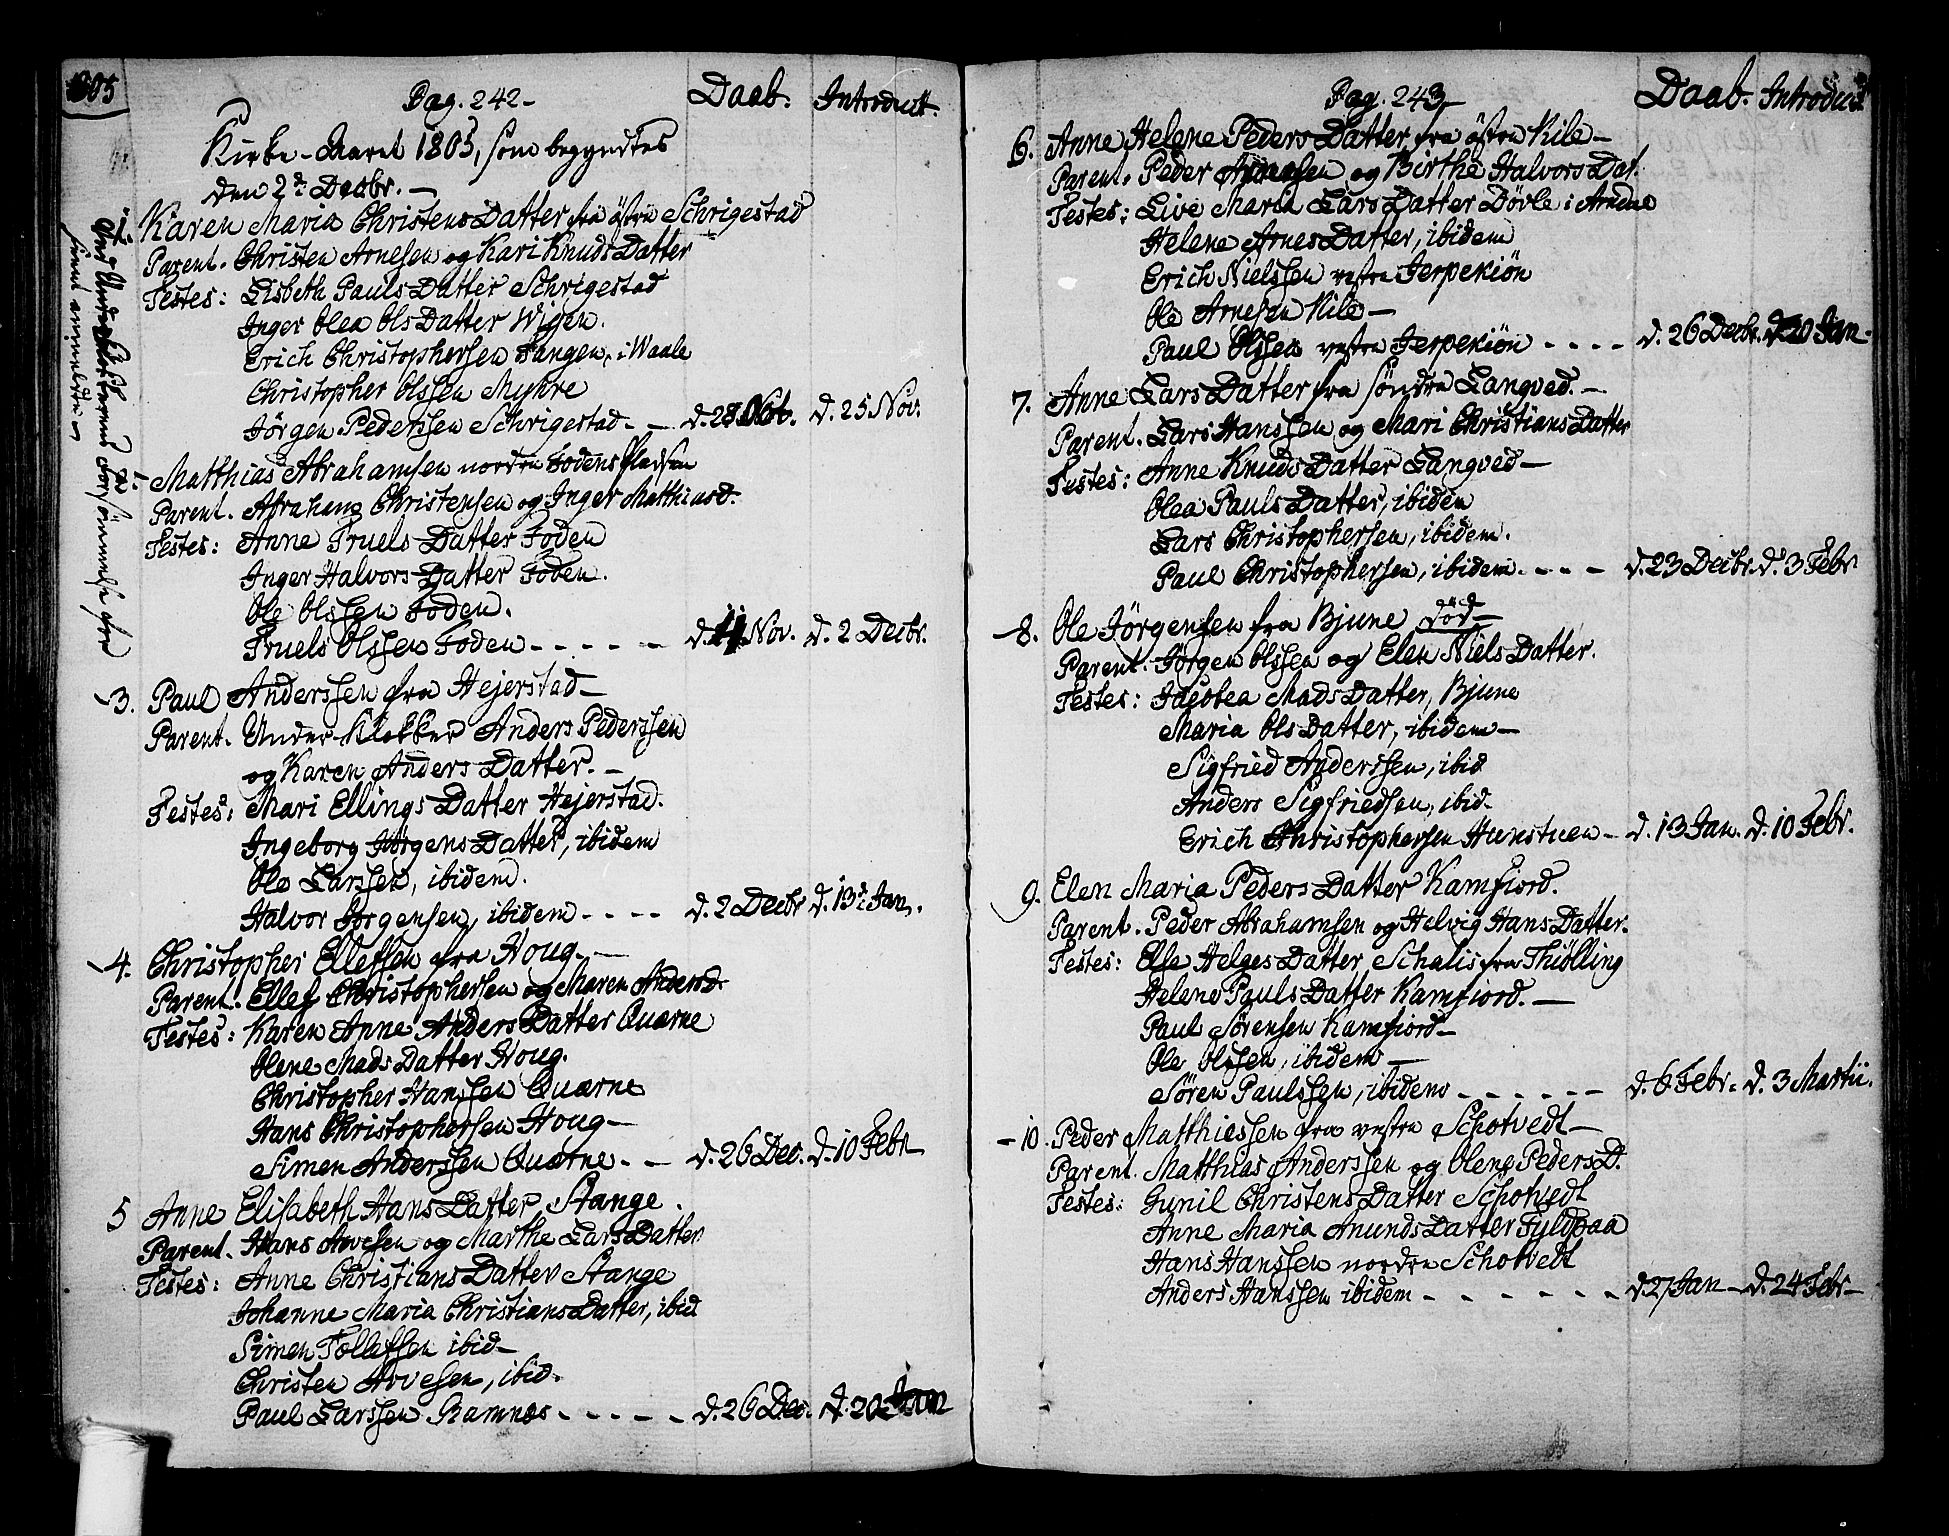 1805
Pag. 242. Daab. Introduct.
Kirke-Aaret 1805, som begyndtes
den 2d Decbr.
1. Karen Maria Christens Datter fra østre Schrigestad
Parent. Christen Arnesen og Kari Knuds Datter
Testes: Lisbeth Pauls Datter Schrigestad
Inger Olea Ols Datter Wigen.
Erich Christophersen Tangen, i Waale
Christopher Olssen Myhre
Jörgen Pederssen Schrigestad. d. 28 Oct. d. 25 Nov.
2. Matthias Abrahamsen nordre Foden
Parent. Abraham Christensen og Inger Matthiasd.
Testes: Anne Truels Datter Foden
Inger Halvors Datter Foden.
Ole Olssen Foden.
Truels Olssen Foden - - - - - d. 11 Nov. d. 2 Decbr.
3. Paul Anderssen fra Hejerstad
Parent. Under-Klokker Anders Pederssen
og Karen Anders Datter.
Testes: Mari Ellings Datter Hejerstad.
Ingeborg Jörgens Datter, ibidem
Ole Larssen, ibidem.
Halvor Jörgensen, ibidem - - - - d. 2 Decbr d. 13d Jan.
4. Christopher Ellefsen fra Houg.
Parent. Ellef Christophersen og Maren Andersd.
Testes: Karen Anne Anders Datter Quærne
Olene Mads Datter Houg.
Christopher Hanssen Quærne
Hans Christophersen Houg
Simen Anderssen Quærne. d. 26 Dec. d. 10 Febr
5 Anne Elisabeth Hans Datter Stange.
Parent. Hans Arvesen og Marthe Lars Datter
Testes: Anne Christians Datter Stange
Johanne Maria Christians Datter, ibid
Simen Tollefsen ibid
Christen Arvesen, ibid.
Paul Larssen Ramnæs - - - - - d. 26 Dec. d. 20 Jan
Pag. 243 Daab. Introduct
6. Anne Helene Peders Datter fra østre Kile
Parent. Peder Arnesen og Birthe Halvors Dat.
Testes: Live Maria Lars Datter Dövle i
Helene Arnes Datter, ibidem
Erich Nielssen vestre Jerpekiön
Ole Arnesen Kile
Paul Olssen vestre Jerpekiön - - - - d. 26 Decbr. d. 20 Jan
7. Anne Lars Datter fra søndre Langved.
Parent. Lars Hanssen og Mari Christians Datter
Testes: Anne Knuds Datter Langved
Olea Pauls Datter, ibidem
Lars Christophersen, ibidem.
Paul Christophersen, ibidem. - - - d. 23 Decbr. d. 3 Febr
8. Ole Jörgensen fra Bjune död
Parent. Jörgen Olssen og Elen Niels Datter.
Testes: Jacobea Mads Datter, Bjune
Maria Ols Datter, ibidem
Sigfried Anderssen, ibid
Anders Sigfriedsen, ibid.
Erich Christophersen Hunstuen d. 13 Jan. d. 10 Febr.
9. Elen Maria Peders Datter Kamfiord.
Parent. Peder Abrahamsen og Helvig Hans Datter.
Testes: Else Helges Datter Schalis fra Thiölling
Helene Pauls Datter Kamfiord.
Paul Sörensen Kamfiord
Ole Olssen, ibidem
Sören Paulssen, ibidem - - - - - - d. 6 Febr. d. 3 Martii.
10. Peder Matthiessen fra vestre Schotvedt
Parent. Matthias Anderssen og Olene Peders D.
Testes: Gunil Christens Datter Schotvedt
Anne Maria Anunds Datter Fyldpaa
Hans Hanssen nordre Schotvedt
Anders Hanssen ibidem - - - - - - d. 27 Jan d. 24 Febr